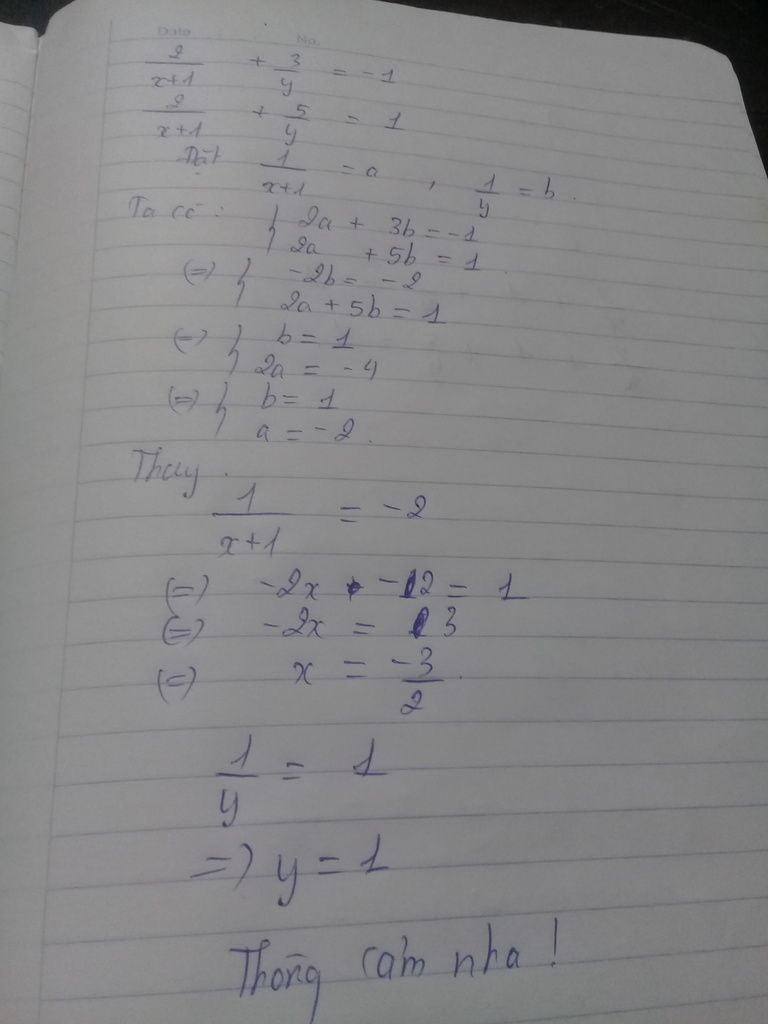 Date No.
2/(x+1) + 3/y = -1
2/(x+1) + 5/y = 1
Đặt 1/(x+1) = a , 1/y = b.
Ta có: { 2a + 3b = -1
2a + 5b = 1
(=) { -2b = -2
2a + 5b = 1
(=) { b = 1
2a = -4
(=) { b = 1
a = -2.
Thay.
1/(x+1) = -2
(=) -2x - 2 = 1
(=) -2x = 3
(=) x = -3/2.
1/y = 1
=) y = 1
Thông cảm nha!